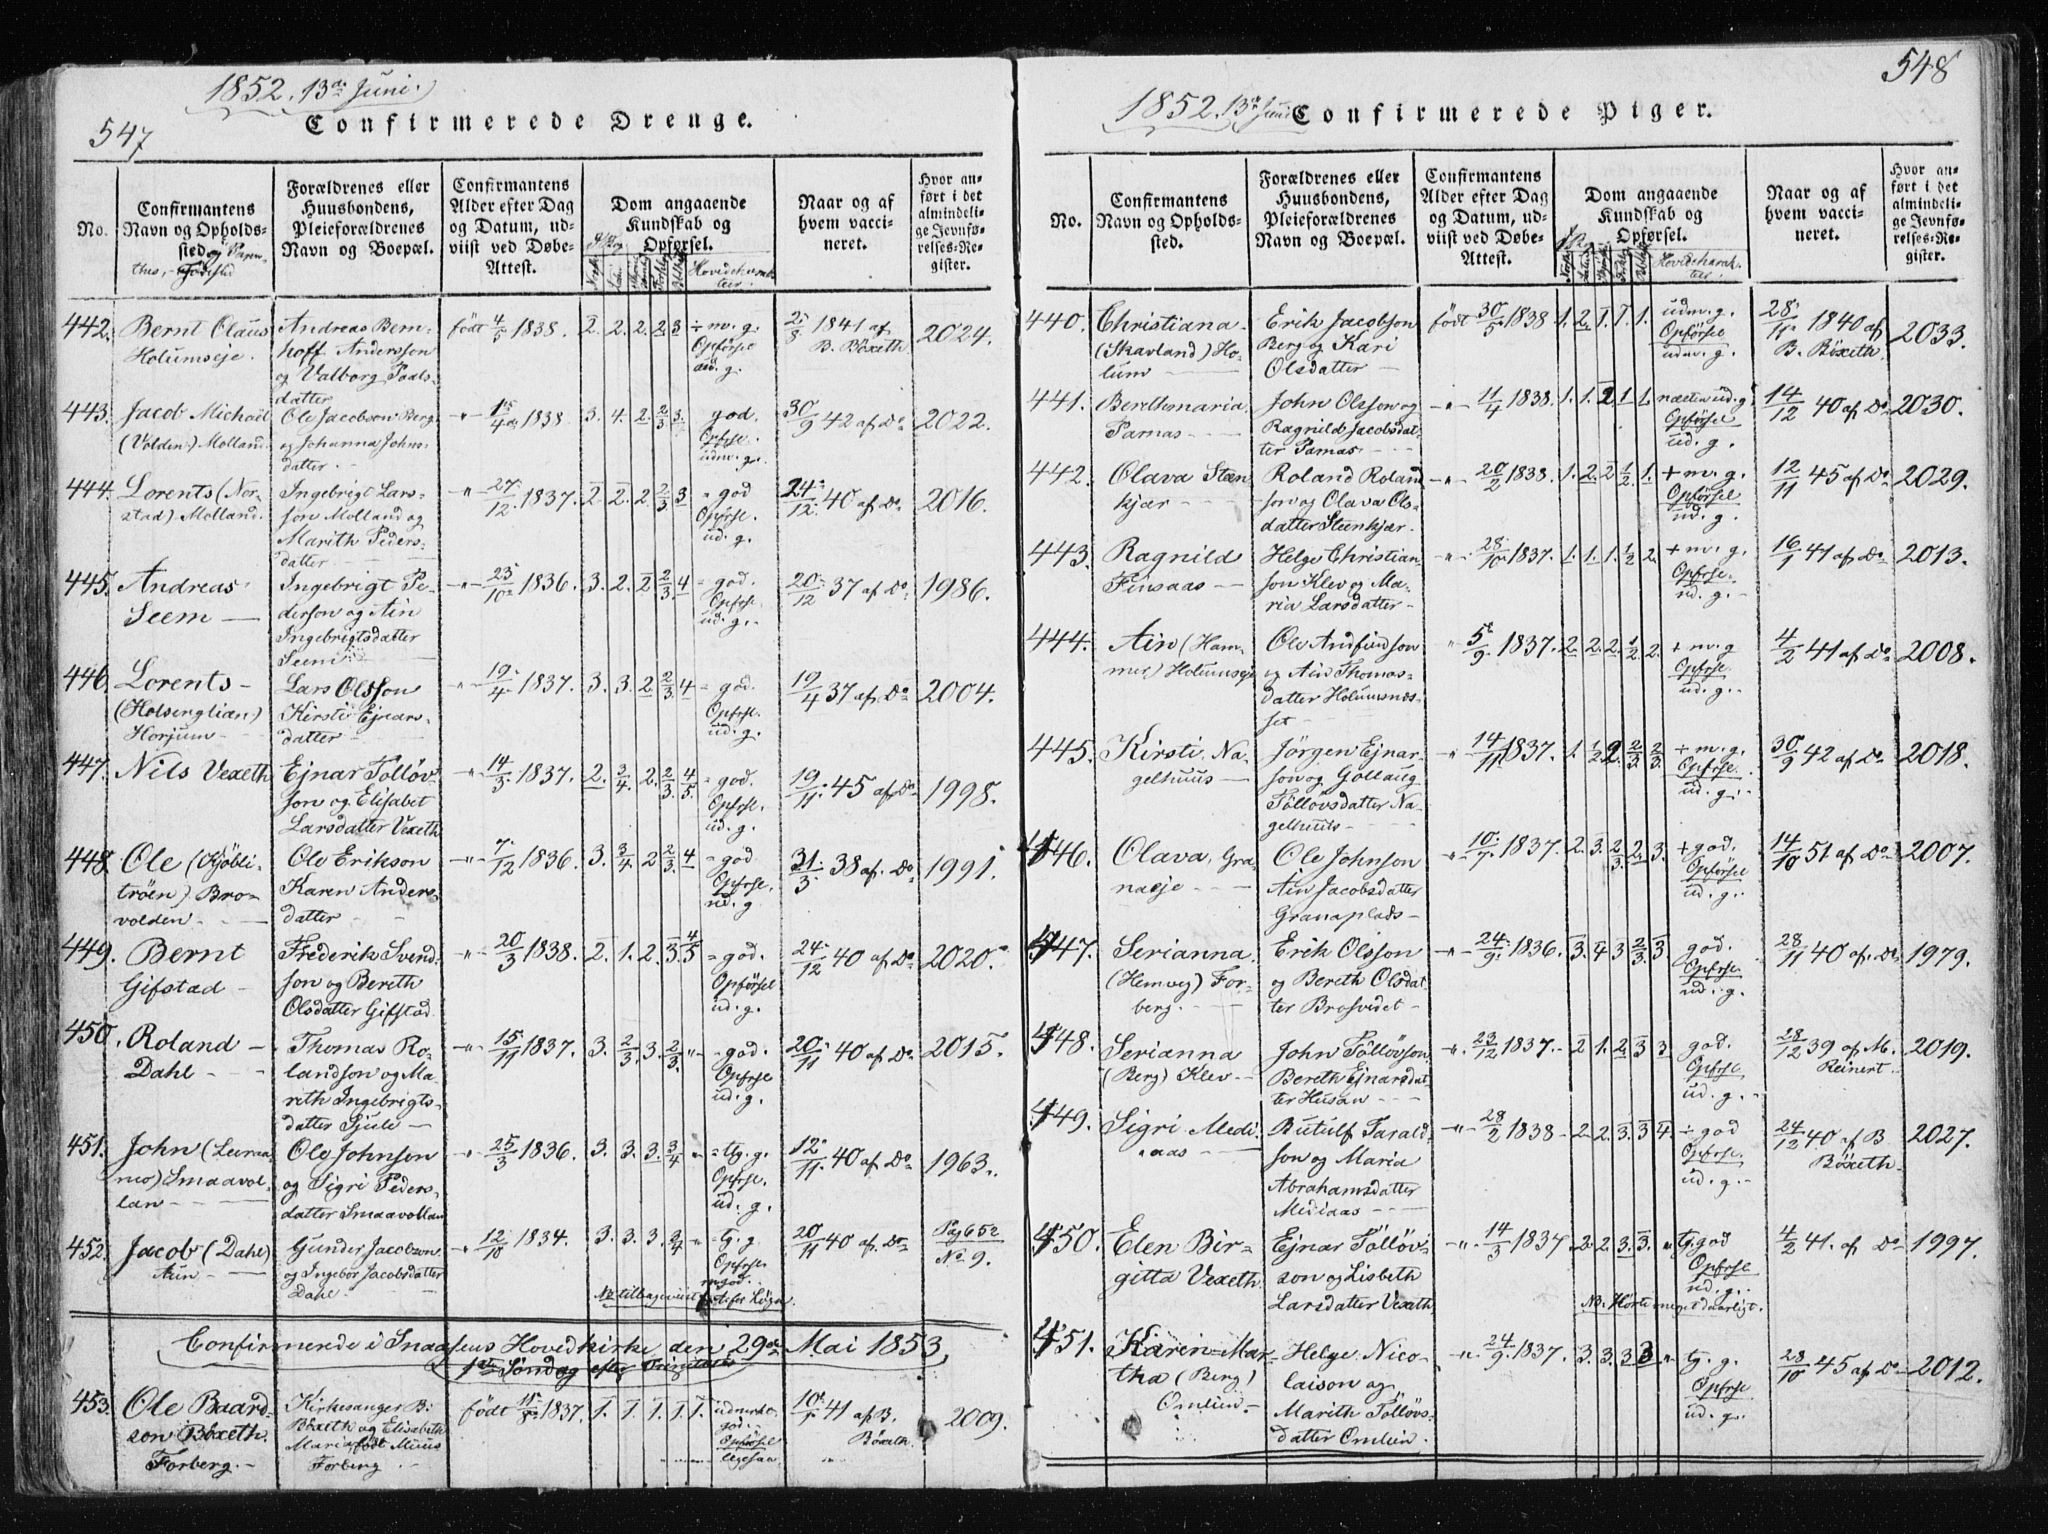 547
1852. 13de Juni.
Confirmerede Drenge.
No.
Confirmantens Navn og Opholdssted og Paren-
thes, Fødested
Forældrenes eller Huusbondens, Pleieforældrenes Navn og Boepæl.
Confirmantens Alder efter Dag og Datum, udviist ved Døbe-Attest.
Dom angaaende Kundskab og Opførsel.
Naar og af hvem vaccineret.
Hvor anført i det almindelige Jevnførelses-Register.
442. Bernt Olaus
Holumseje.
Andreas Bern-
hoff Andersson
og Valborg Paals-
datter
født 4/5 1838.
2. 2. 2. 2. 3
÷ m. g.
Opførsel
ud. g.
2/8 1841 af
B. Böxeth
2024.
443. Jacob Michael
(Volden) Molland.
Ole Jacobson Berg
og Johanna Johns-
datter
-"- 15/4 1838.
3. 4. 2. 2/3 3.
god.
Opfrsl.
udm. g.
30/9 42 af Do
2022.
444. Lorents (Nor-
stad) Molland.
Ingebrigt Lars-
son Molland og
Marith Peders-
datter
-"- 27/12 1837.
2. 2. 2. 2/3 3
god
Opfrsl.
ud. g.
24/12 40 af Do
2016.
445. Andreas
Seem
Ingebrigt Pe-
derson og Ain
Ingebrigtsdatter
Seem
-"- 23/10 1836.
3. 2. 2 2/3 4
god.
Opfrse.
ud. g.
20/12 37 af Do
1986.
446. Lorents
(Holsenglian)
Horjum
Lars Olsson
Kirsti Ejnars-
datter
-"- 19/4 1837.
3. 3. 2 2/3 4
god.
Opfrsl.
ud. g.
19/4 37 af Do
2004.
447. Nils Vexeth
Ejnar Tølløv-
son og Elisabet
Larsdatter Vexeth
-"- 14/3 1837.
2. 3/4. 2. 2/3. 4/5
god.
Opfrse.
ud. g.
19/11 45 af Do
1998.
448. Ole (Kjöbli-
tröen) Bro-
volden
Ole Erikson
Karen Anders-
datter
-"- 7/12 1836.
3. 3/4 2 2/3. 4
god
Opfrse.
ud. g
31/3 38 af. Do
1991.
449. Bernt
Gifstad
Frederik Svend-
son og Bereth
Olsdatter Gifstad
-"- 20/3 1838.
2. 1. 2. 3 4/5
god.
Opförsel
ud. g.
24/12 40 af Do
2020.
450. Roland
Dahl
Thomas Ro-
landson og Ma-
reth Ingebrigts-
datter Gjule
-"- 15/11 1837.
3. 2/3. 3. 2/3. "
god.
Opfrse
ud. g.
20/11 40 af Do
2015.
451. John (Leira-
mo) Smaavol-
lan
Ole Johnson
og Sigri Peders-
datter Smaavollan
-"- 25/3 1836.
3. 3. 3. 3/4 "
tg. g.
Opfrse.
ud. g.
12/11 40 af Do
1963.
452. Jacob (Dahl)
Aun
Gunder Jacobson
og Ingebor Jacobsdatter
Dahl
-"- 12/10 1834.
3. 3. 3. 3/4
Tg. g
Opfrse
mgod.
20/11 40 af Do
Pag 652
No 9.
Confirmerede i Snaasens Hovedkirke, den 29de Mai 1853,
1ste Søndag efter Trinitatis
453. Ole Baard-
son Böxeth.
Forberg.
Kirkesanger B.
Böxeth og Elisabeth
Maria født Muus
Forberg
født 1837.
1. 1. 1. 1. 1.
god.
Opførsel
ligesaa
10/1 41 af B.
Böxeth.
2009.
548
1852. 13de Juni
Confirmerede Piger.
No.
Confirmantens Navn og Opholdssted.
Forældrenes eller Huusbondens, Pleieforældrenes Navn og Boepæl.
Confirmantens Alder efter Dag og Datum, udviist ved Døbe-Attest.
Dom angaaende Kundskab og Opførsel.
Naar og af hvem vaccineret.
Hvor anført i det almindelige Jevnførelses-Register.
440. Christiana
(Skavland) Ho-
lum
Erik Jacobson
Berg og Kari
Olsdatter
født 30/5 1838
1. 2. 1. 1. 1.
udm. g.
Opførsel
udm. g.
28/11 1840 af
B. Böxeth.
2033.
441. Berethmaria
Parnas
John Olsson og
Ragnild Jacobsdat-
ter Parnas
-"- 11/4 1838.
1. 1. 2. 1 1.
næsten ud. g
Opførsel
ud. g.
14/12 40 af Do
2030.
442. Olava Steen
kjær
Roland Roland
son og Olava Ols-
datter Steenkjær.
-"- 20/2 1838.
1. 2. 2 1/2. 1.
+ m. g.
Opførsel
ud. g.
12/11 45 af Do
2029.
443. Ragnild
Finsaas
Helge Christian-
son Klev og Ma-
ria Larsdatter
-"- 28/10 1837.
1. 1. 1. 1/2 2.
+ m. g.
Opfrse.
ud. g.
16/1 41 af Do
2013.
444. Ain (Ham-
mer) Holumseje
Ole Andfindson
og Ain Thomas-
datter Holumsnes-
set
" 5/9 1837.
2. 2. 2. 1/2 2.
+ m. g
Opførsl
ud. g.
4/2 41 af Do
2008.
445. Kirsti Na-
gelhuus
Jörgen Ejnar-
son og Gollaug
Tölløvsdatter Na-
gelhuus
" 14/11 1837.
1. 1/2 2. 2/3 2/3
+ m. g.
Opfrse.
ud. g.
30/9 42 af Do
2018.
446. Olava Gra-
naeje
Ole Johnson
Ain Jacobsdatter
Granaplads
-"- 10/7 1837.
2. 3. 2/3. 2/3 3.
+ god.
Opførsel
ud. g.
14/10 51 af Do
2007.
447. Serianna
(Hemveg) For-
berg.
Erik Olsson
og Bereth Olsdat-
ter Brosvedet
-"- 24/9 1836.
3. 4 3 2/3. 3
god.
Opfrse
ud. g.
28/11 40 af. Do
1979.
448. Serianna
(Berg) Klev
John Tölløvson
Bereth Ejnarsdat-
ter Husan
-"- 23/12 1837.
2 1. 2. 3 3.
god.
Opfrse
ud. g.
28/12 39 af M.
Reinert.
2019.
449. Sigri Medi-
aas
Rutulf Tarald-
son og Maria
Abrahamsdatter
Mediaas
-"- 28/2 1838
2. 2. 3. 3 4.
÷ god
Opfrse.
ud. g.
24/12 40 af B.
Böxeth.
2027.
450. Elen Bir-
gitta Vexeth
Ejnar Tölløv-
son og Lisbeth
Larsdatter Vexeth
-"- 14/3 1837
2. 2. 3. 3. "
tg. god
Opfrse
ud. g.
NB. Hörte meget daarligt.
4/2 41. af Do
1997.
451. Karen Mar-
tha (Berg)
Omlien
Helge Nico-
laison og
Marith Tölløvs-
datter Omlien.
-"- 24/9 1837.
3. 3. 3 3 "
tg. g.
Opfrse
ud. g.
28/10 45 af Do
2012.